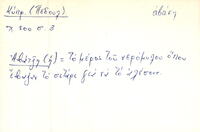 Κύπρ. (Πεδουλ.) ἀβάκη
π 200 σ. 3
= τὸ μέρος τοῦ νερόμυλου ὅπου
ἔβαζαν τὸ σιτάρι γιὰ νὰ τὸ ἀλέσουν